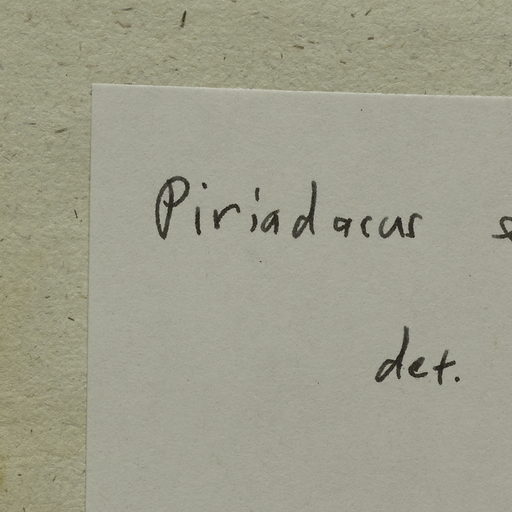 Piriadacus
det.